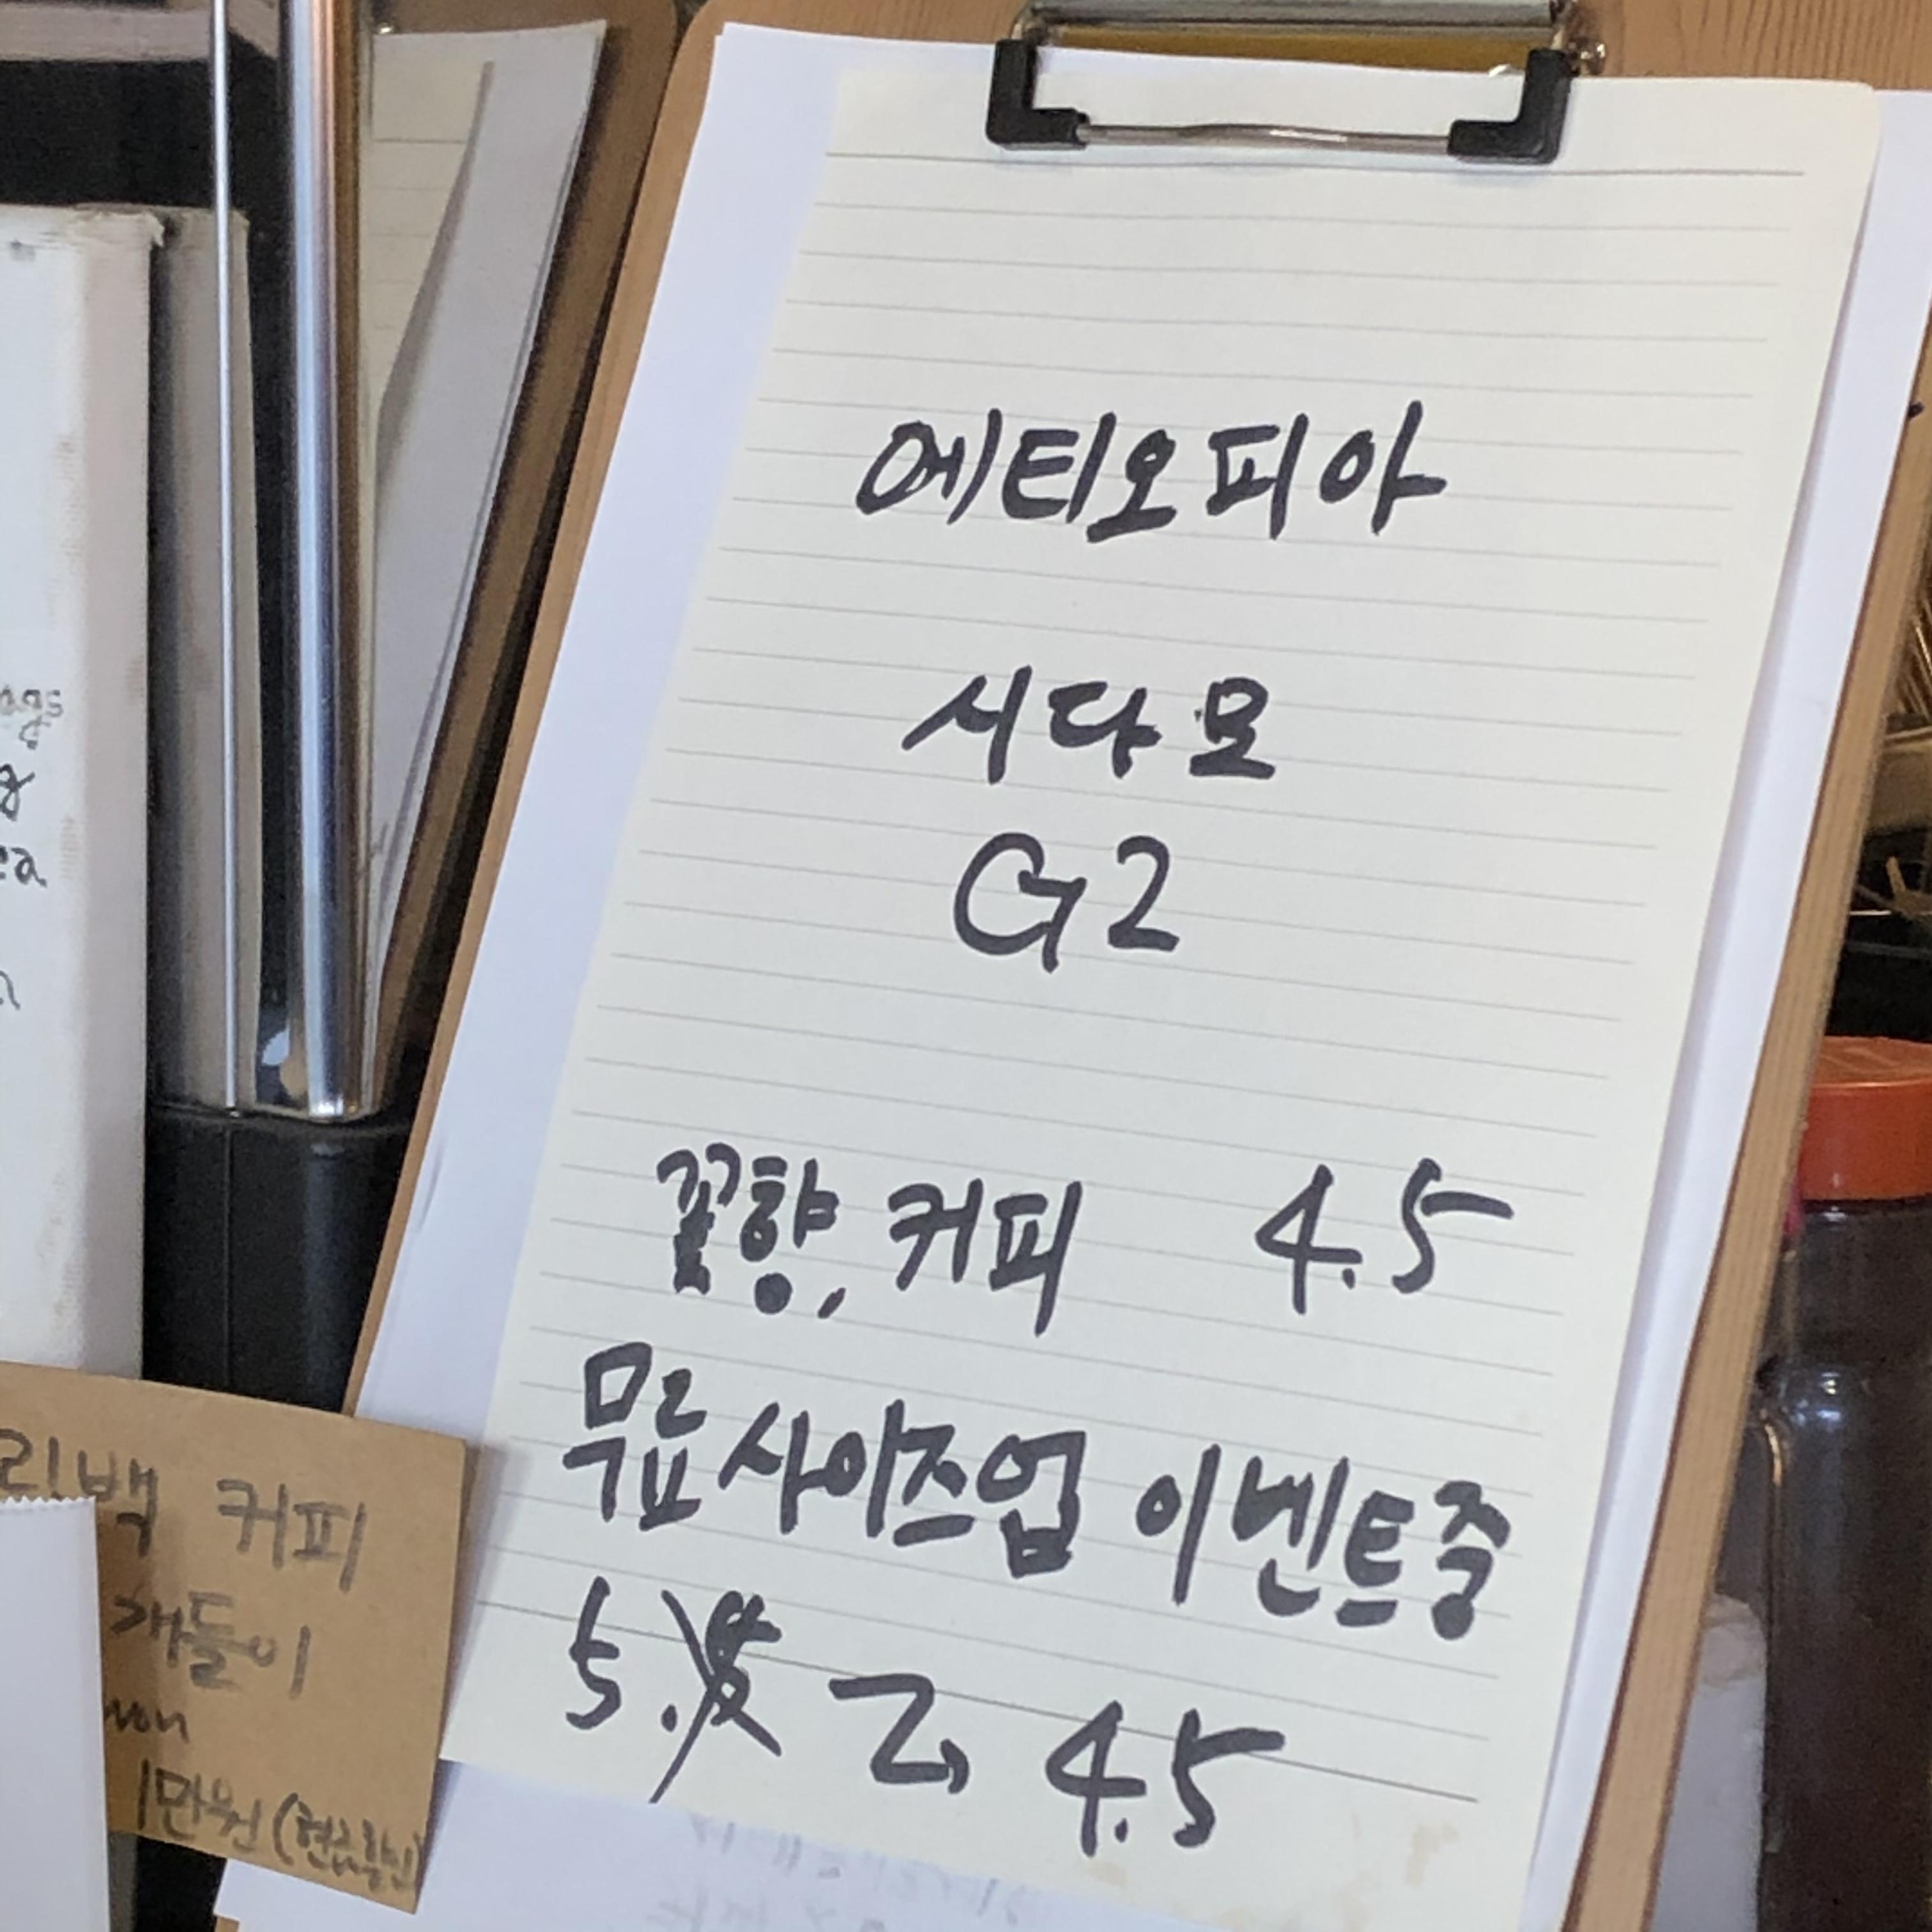 에티오피아
시다모
G2
꽃향, 커피 4.5
무료 사이즈업 이벤트중
5. → 4.5
백 커피
개들이
won
1만원 (현금